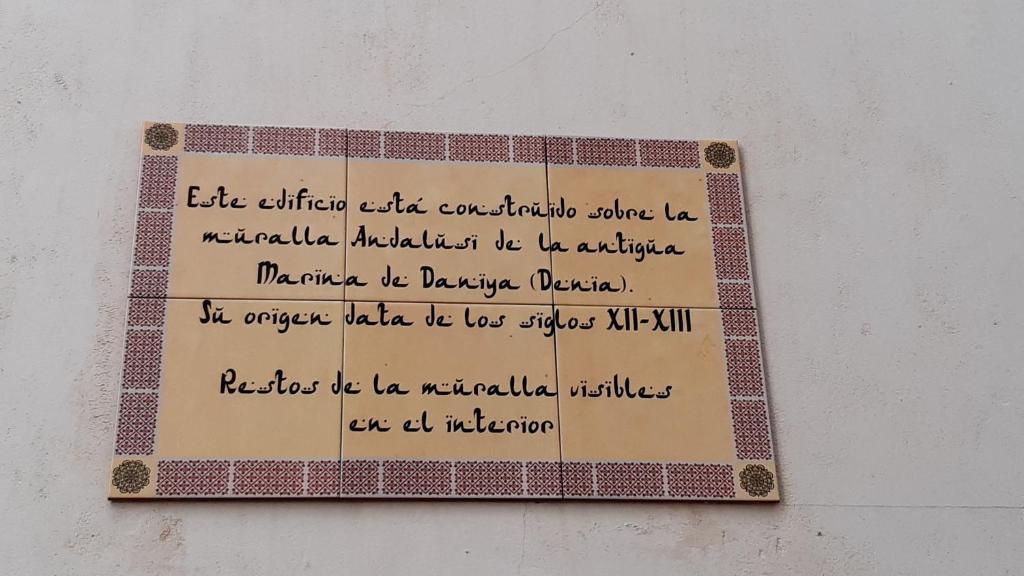 Este edificio está construido sobre la
muralla Andalusi de la antigua
Marina de Daniya (Denia).
Su origen data de los siglos XII-XIII
Restos de la muralla visibles
en el interior